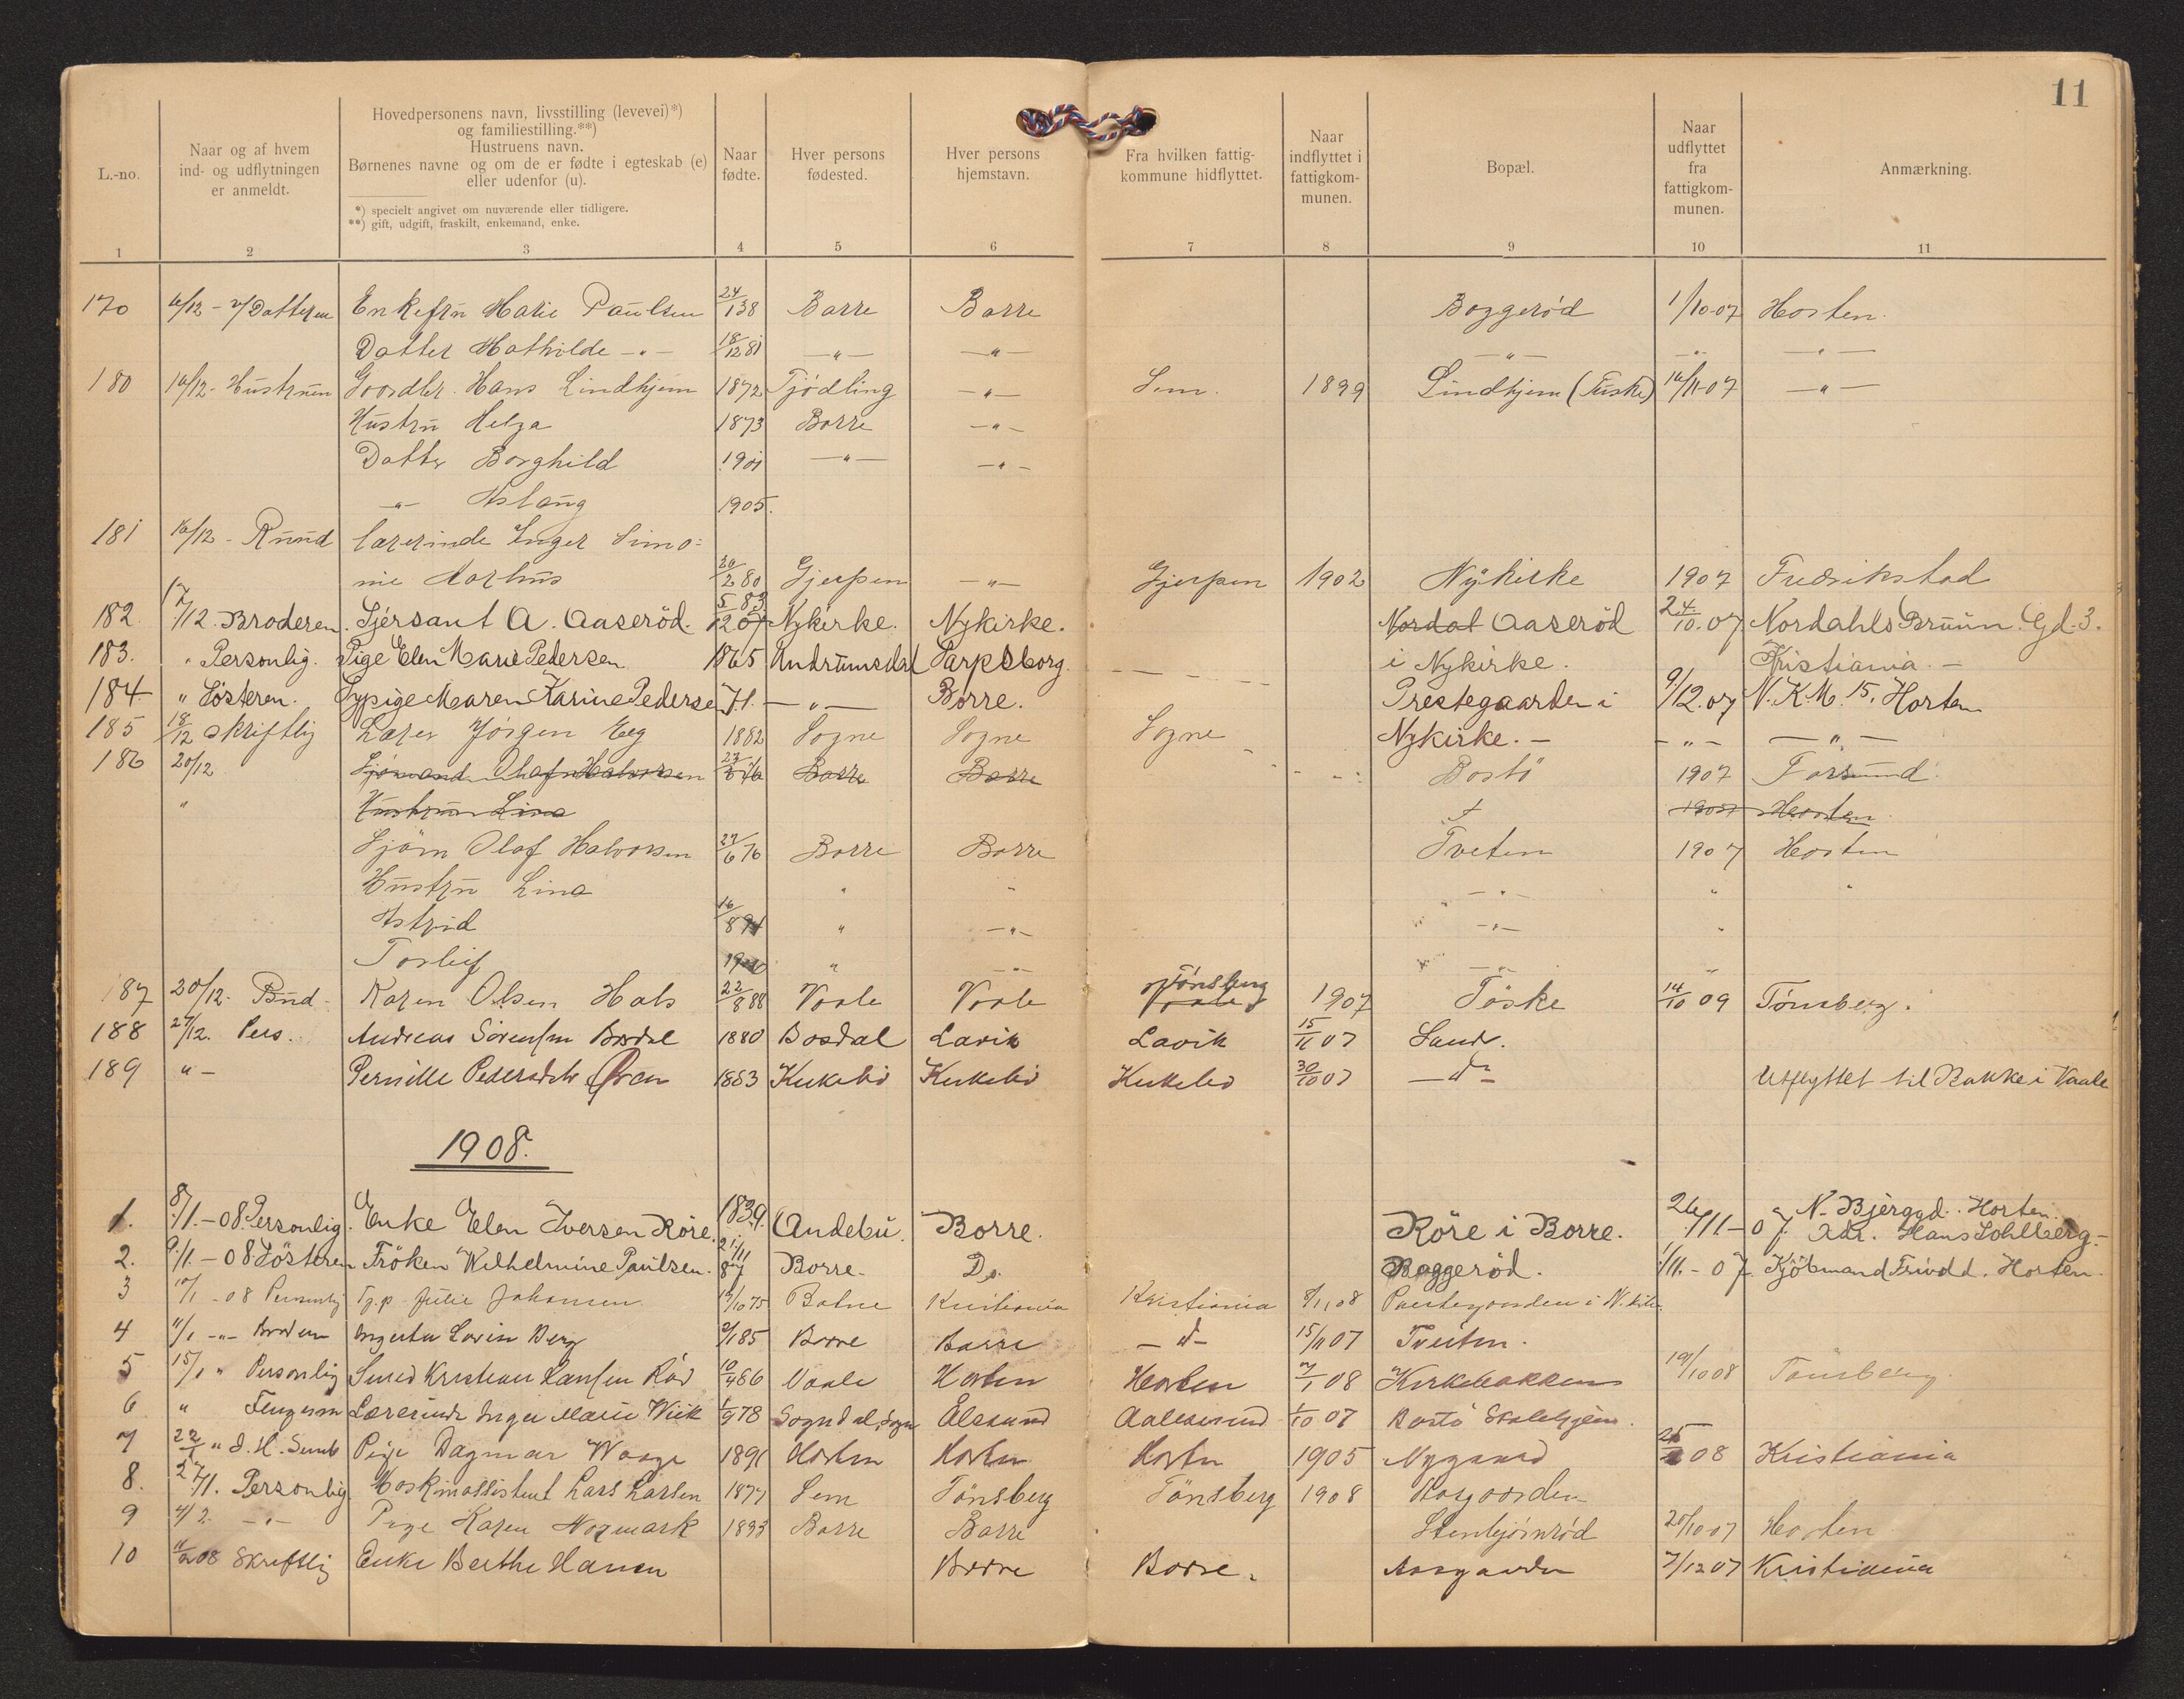 11
L.-no. Naar og af hvem ind- og udflytningen er anmeldt. Hovedpersonens navn, livsstilling (levevei)*) og familiestilling.**) Hustruens navn. Børnenes navne og om de er fødte i egteskab (e) eller udenfor (u). Naar fødte. Hver persons fødested. Hver persons hjemstavn. Fra hvilken fattigkommune hidflyttet. Naar indflyttet i fattigkommunen. Bopæl. Naar udflyttet fra fattigkommunen. Anmærkning.
*) specielt angivet om nuværende eller tidligere.
**) gift, udgift, fraskilt, enkemand, enke.
1 2 3 4 5 6 7 8 9 10 11
170 6/12 - v/Datteren Enkefru Marie Paulsen 24/1 38 Borre Borre Boggerød 1/10-07 Horten.
Datter Mathilde -"- 18/12 81 -"- -"- -"- -"- -"-
180 10/12- Hustruen Gaardbr. Hans Lindhjem 1872 Tjödling -"- Sem. 1899 Lindhjem (Tuske) 16/11-07 -"-
Hustru Helga 1873 Borre -"-
Datter Borghild 1901 -"- -"-
-"- Aslaug 1905.
181 16/12 - Ruud Lærerinde Inger Simo=
nie Aarhus 20/2 80 Gjerpen -"- Gjerpen 1902 Nykirke 1907 Fredrikstad
182. 17/12. Broderen. Sjersant A. Aaseröd. 5/12 83 07 Nykirke. Nykirke. Nordal Aaseröd 24/10.07 Nordahls Bruun Gd. 3.
183. " Personlig. Pige Elen Marie Pedersen. 1865 Undrumsdal Sarpsborg. i Nykirke. Kristiania.-
184 " Søsteren. Sypige Maren Karine Pedersen 71. -"- Borre. Prestegaarden i 9/12.07 N.K.M. 15. Horten
185 18/12 skriftlig Lærer Jørgen Eeg 1882 Sogne Sogne Sogne Nykirke.- -"- -"-
186 20/12 Sjømand Olaf Halvorsen 27/6 76 Borre Borre Bastö 1907 Farsund
" Hustruen Lina 1907 Horten
Sjøm Olaf Halvorsen 27/6 76 Borre Borre Tveten 1907 Horten
Hustru Lina " " -"- " "
Astrid 16/8 " -"- -"- "
Torleif " -"- -"- "
187 20/12- Bud- Karen Olsen Hals 22/8 88 Vaale Vaale Vaale Tønsberg 1907 Töske 14/10 09 Tønsberg.
188 27/12. Pers. Andreas Sörensen Bordal 1880 Bosdal Lavik Lavik 15/11 07 Sande.
189 " - Pernille Pedersdtr 1883 Kirkebø Kirkebø Kirkebø 30/10 07 -d- Utflyttet til Bakke i Vaale
1908.
1. 8/1.-08. Personlig. Enke Elen Iversen Röre. 1839. Andebu. Borre. Röre i Borre. 26/11-07 N. Bjerggd. Horten.
Adr. Hans Sohlberg-
2. 9/1.-08. Sösteren Fröken Wilhelmine Paulsen. 21/11 87 Borre- Do. Baggeröd. 1/11.-07. Kjöbmand Frivold. Horten-
3 10/1 -08 Personlig Tj.p. Julie Johansen 19/10 75 Botne Kristiania Kristiania 8/1 08 Prestegaarden i N.kirke
4 11/1 -"- Broderen Lovise Berg 9/1 85 Borre Borre -d- 15/11 07 Tveiten.
5 15/1 " Personlig Smed Kristian Hansen Röd 10/4 66 Vaale Horten Horten 7/1 08 Kirkebakken 19/10 08 Tönsberg.
6 " Lærerinde Inger Marie Wiik 1/9 78 Sogndal, Sogn Ålesund Aalesund 1/10 07 Bastö Skolehjem.
7 22/1 " Pige Dagmar Waage 1891 Horten Horten Horten 1905 Nygaard 08 Kristiania
8. 27/1. Personlig Maskinassistent Lars Larsen 1877 Sem Tönsberg Tönsberg 1908 Aasgaarden
9 4/2. -"- Pige Karen Nozmark 1893 Borre Borre Stenbjörnröd 20/10-07 Horten
10 11/2 08 Skriftlig Enke Berthe Hansen Borre Borre. Aasgaarden 7/12 07 Kristiania